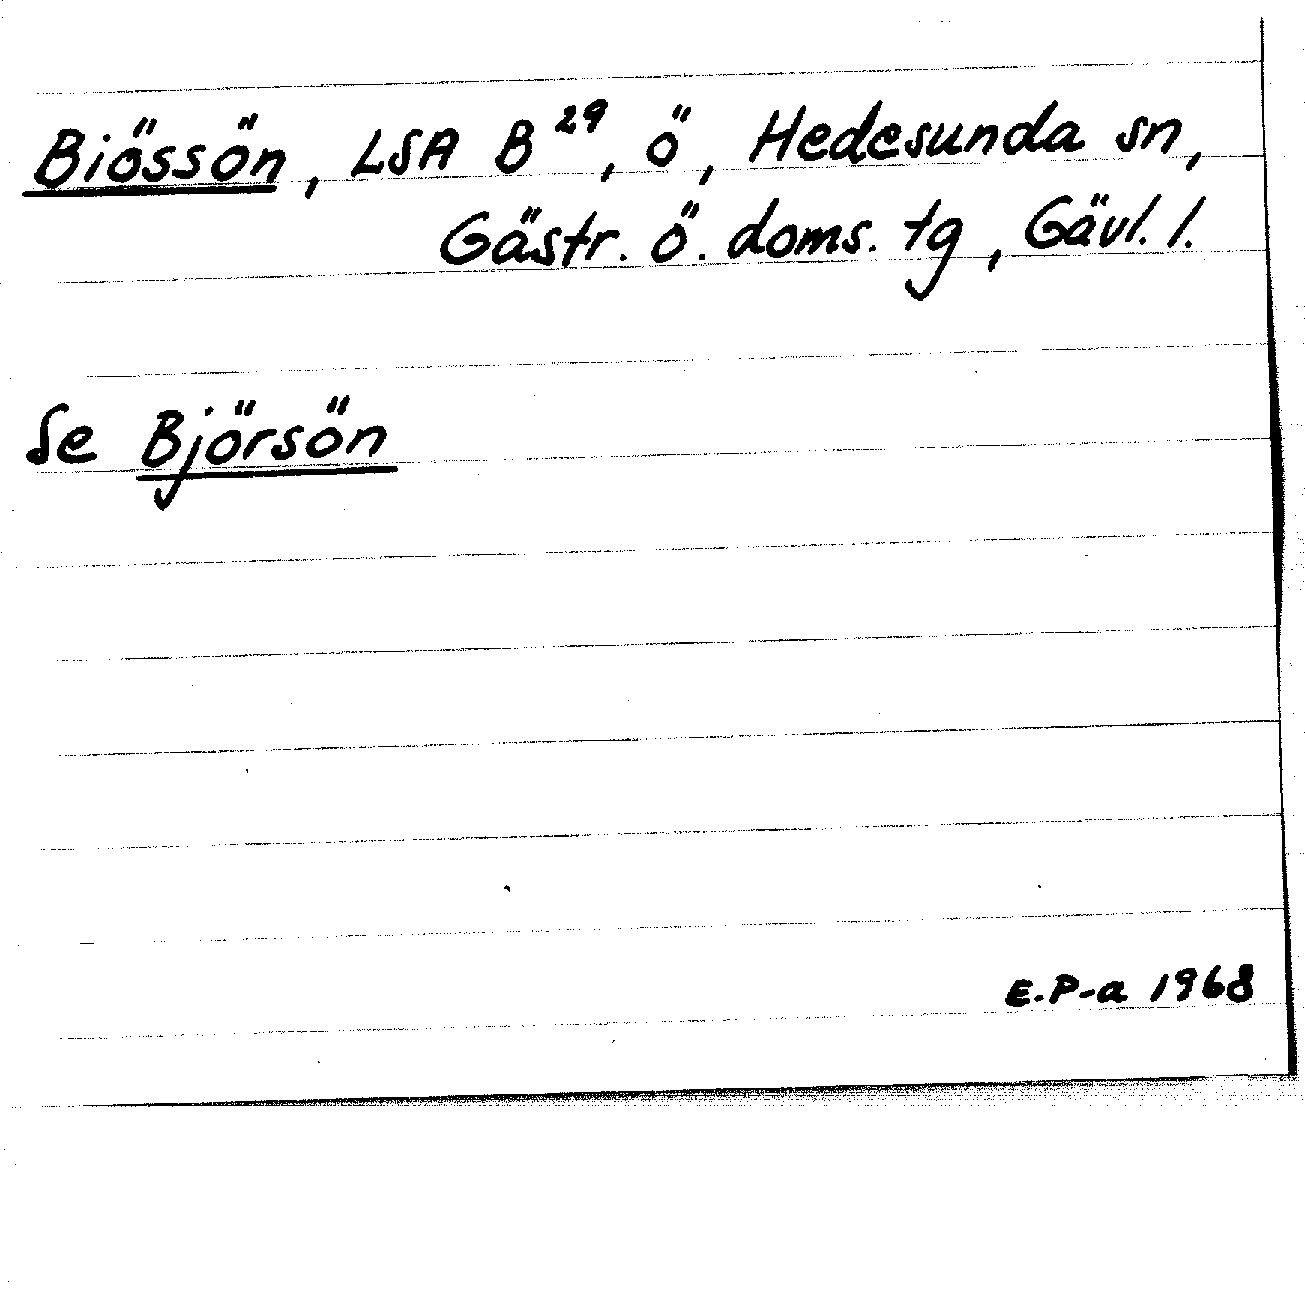 Biössön, LSA B²⁹, ö, Hedesunda sn,
Gästr. ö. doms. tg, Gävl. l.
Se Björsön
E.P-a 1968